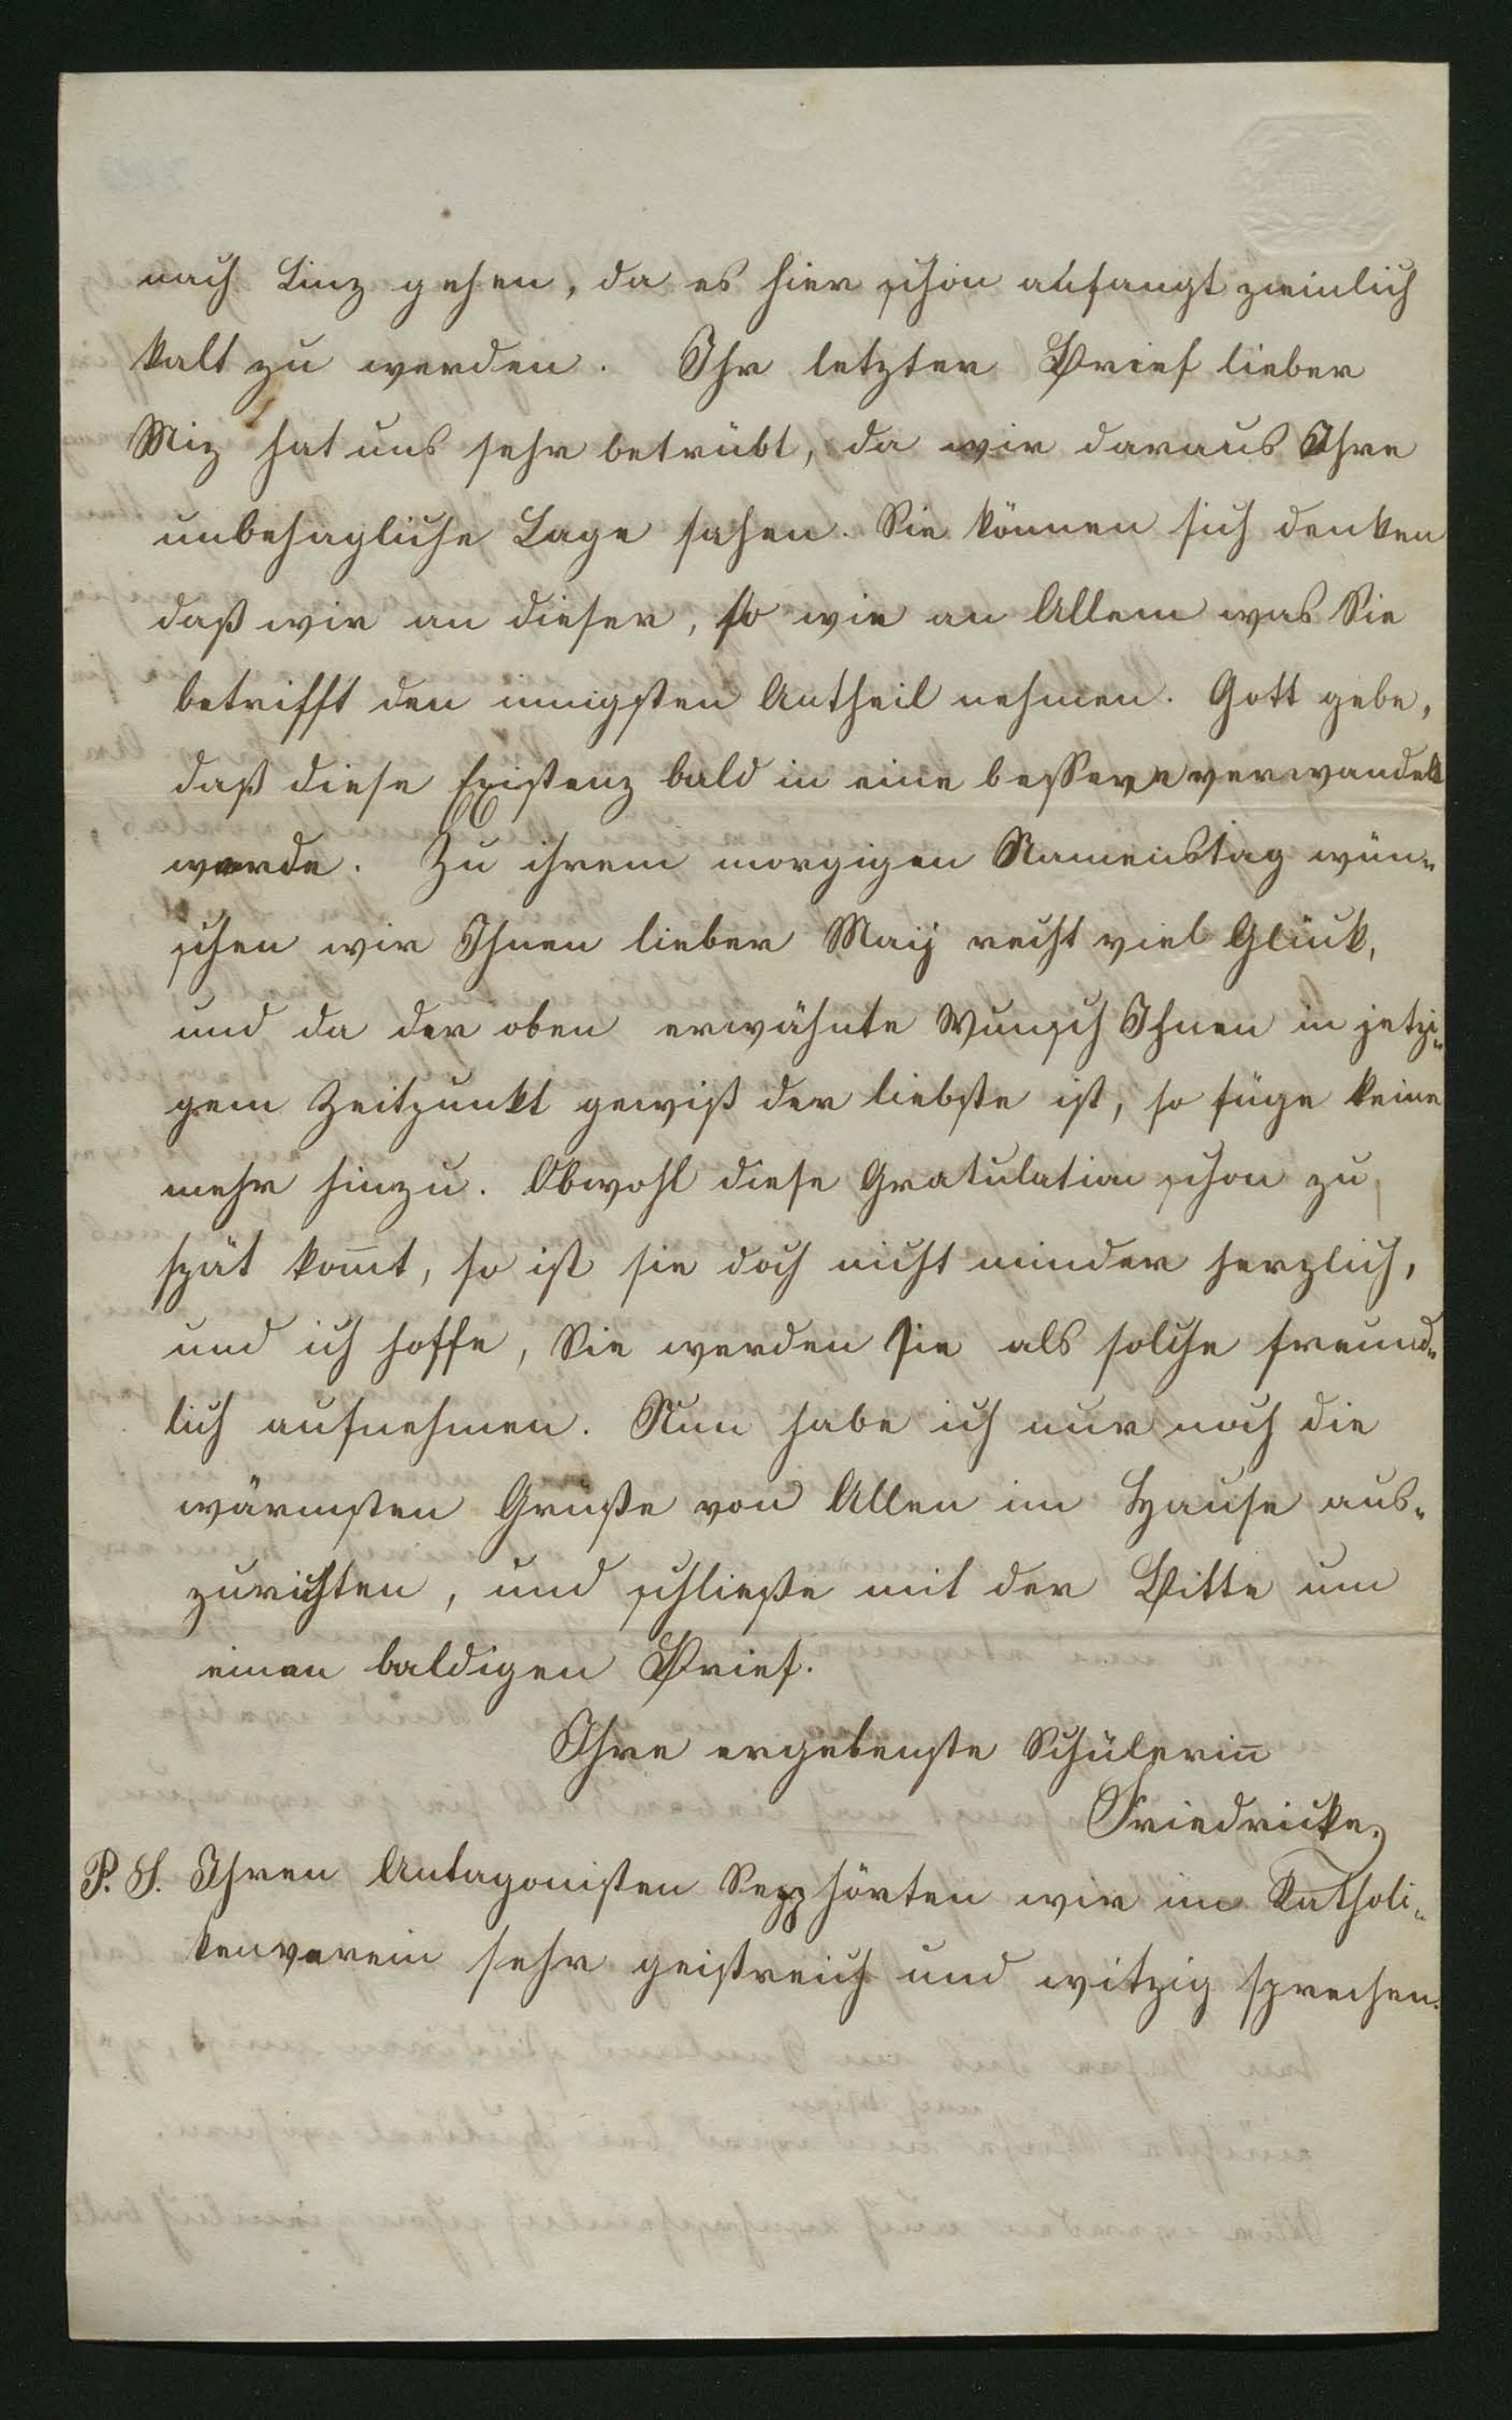 nach Linz gehen, da es hier schon anfangt ziemlich
kalt zu werden. Ihr letzter Brief lieber
Miz hat uns sehr betrübt, da wir daraus Ihre
unbehagliche Lage sahen. Sie können sich denken
daß wir an dieser, so wie an Allem was Sie
betrifft den innigsten Antheil nehmen. Gott gebe,
daß diese Existenz bald in eine bessere verwandelt
werde. Zu ihrem morgigen Namenstag wün-
schen wir Ihnen lieber Maij recht viel Glück,
und da der oben erwähnte Wunsch Ihnen in jetzi-
gem Zeitpunkt gewiß der liebste ist, so füge keine
mehr hinzu. Obwohl diese Gratulation schon zu
spät kom̅t, so ist sie doch nicht minder herzlich,
und ich hoffe, Sie werden sie als solche freund-
lich aufnehmen. Nun habe ich nur noch die
wärmsten Grüße von Allen im Hause aus-
zurichten, und schließe mit der Bitte um
einen baldigen Brief.
Ihre ergebenste Schülerin̅
Friedricke
P. S. Ihren Antagonisten Sepp hörten wir im Katholi-
kenverein sehr geistreich und witzig sprechen.